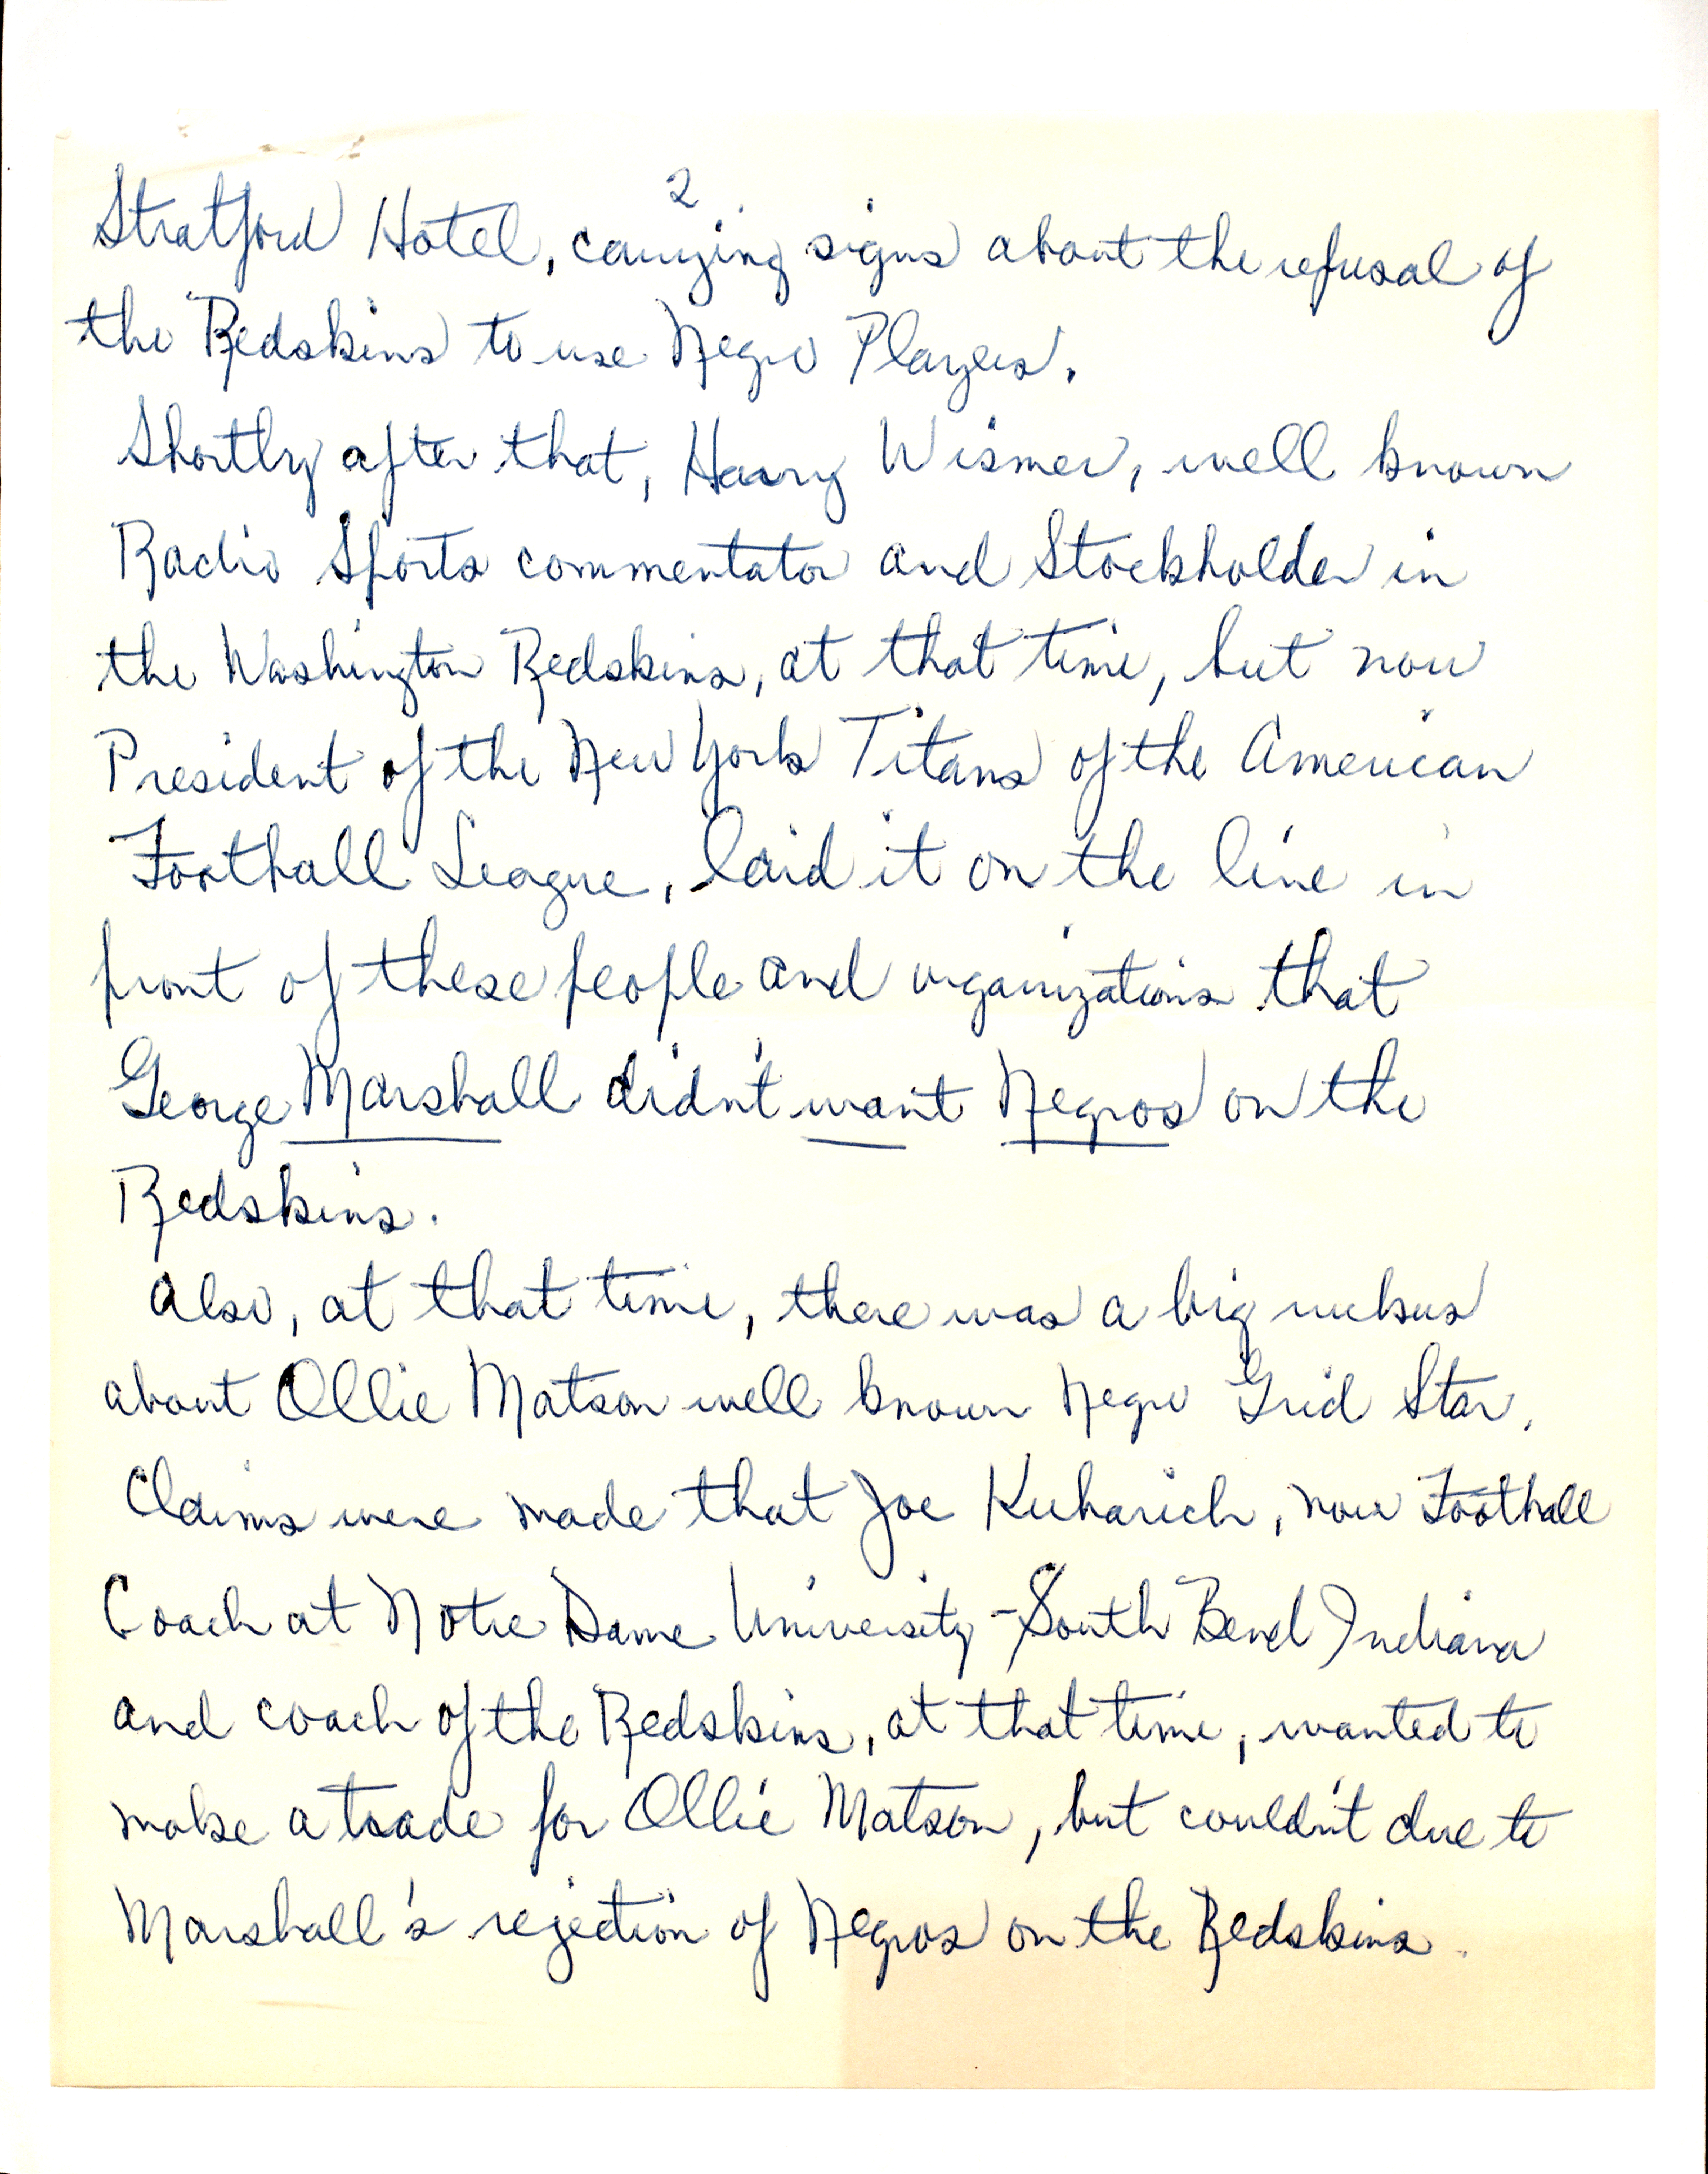 2
Stratford Hotel, carrying signs about the refusal of
the Redskins to use Negro Players.
Shortly after that, Harry Wismer, well known
Radio Sports commentator and Stockholder in
the Washington Redskins, at that time, but now
President of the New York Titans of the American
Football League, laid it on the line in
front of these people and organizations that
George Marshall didn't want Negros on the
Redskins.
Also, at that time, there was a big ruckus
about Ollie Matson well known Negro Grid Star.
Claims were made that Joe Kuharich, now Football
Coach at Notre Dame University - South Bend Indiana
and coach of the Redskins, at that time, wanted to
make a trade for Ollie Matson, but couldn't due to
Marshall's rejection of Negros on the Redskins.